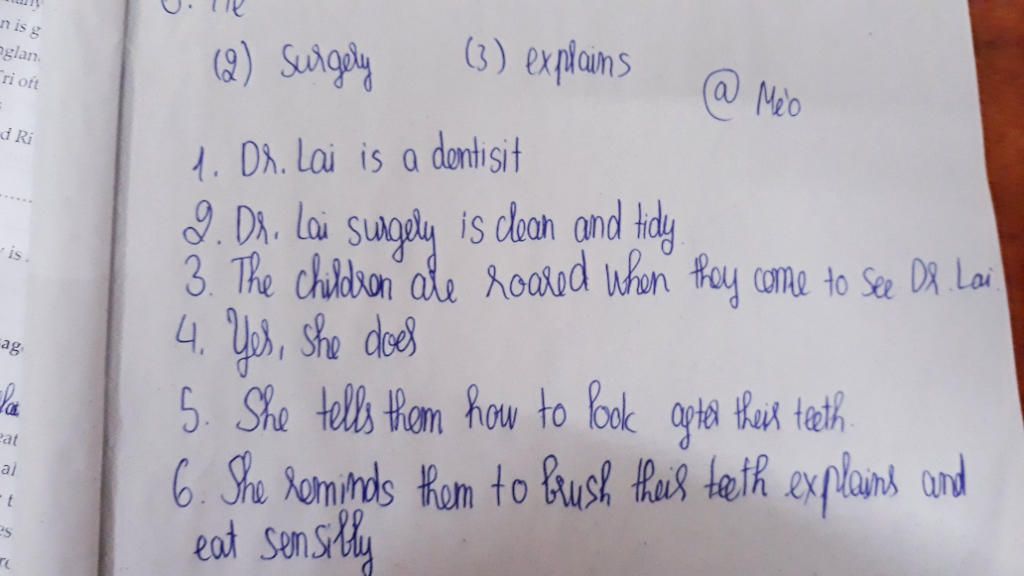 n is g
nglan
ri oft
d Ri
(2) surgery (3) explains
@ Mèo
1. Dr. Lai is a dentisit
2. Dr. Lai surgery is clean and tidy
3. The children are roared when they come to see Dr. Lai.
4. Yes, she does
5. She tells them how to look after their teeth.
6. She reminds them to brush their teeth explains and
eat sensibly